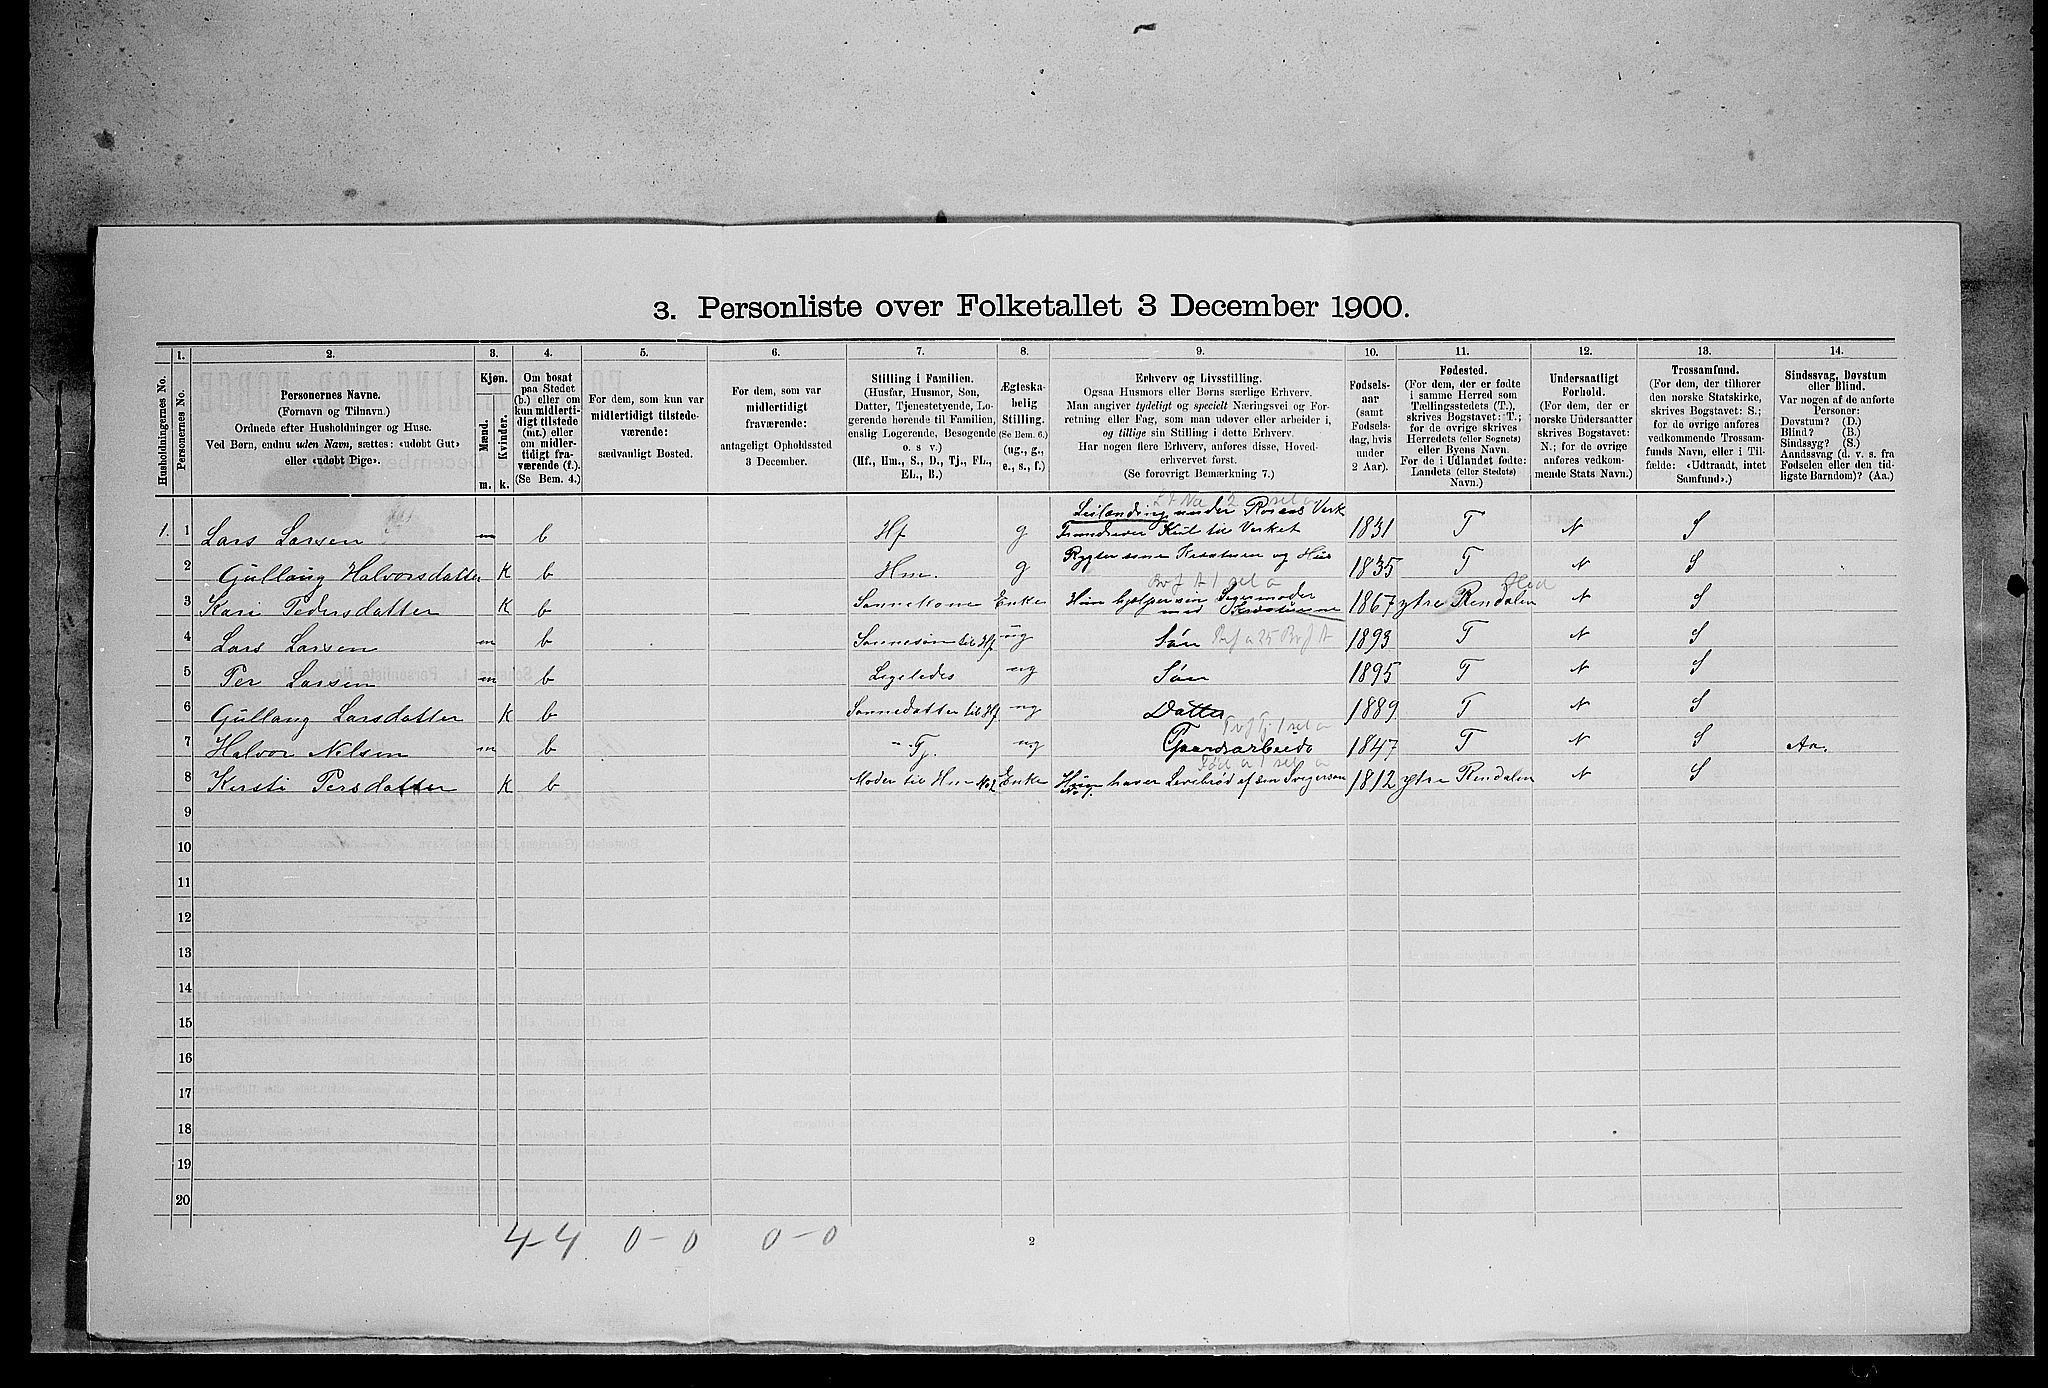 3. Personliste over Folketallet 3 December 1900.
1. 2. 3. 4. 5. 6. 7. 8. 9. 10. 11. 12. 13. 14.
Husholdningernes No.
Personernes No.
Personernes Navne.
(Fornavn og Tilnavn.)
Ordnede efter Husholdninger og Huse.
Ved Børn, endnu uden Navn, sættes: «udøbt Gut»
eller «udøbt Pige».
Kjøn.
Mænd.
Kvinder.
m. k.
Om bosat
paa Stedet
(b.) eller om
kun midlerti-
digt tilstede
(mt.) eller
om midler-
tidigt fra-
værende (f.).
(Se Bem. 4.)
For dem, som kun var
midlertidigt tilstede-
værende:
sædvanligt Bosted.
For dem, som var
midlertidigt
fraværende:
antageligt Opholdssted
3 December.
Stilling i Familien.
(Husfar, Husmor, Søn,
Datter, Tjenestetyende, Lo-
gerende hørende til Familien,
enslig Logerende, Besøgende
o. s. v.)
(Hf., Hm., S., D., Tj., FL.,
EL., B.)
Ægteska-
belig
Stilling.
(Se Bem. 6.)
(ug., g.,
e., s., f.)
Erhverv og Livsstilling.
Ogsaa Husmors eller Børns særlige Erhverv.
Man angiver tydeligt og specielt Næringsvei og For-
retning eller Fag, som man udøver eller arbeider i,
og tillige sin Stilling i dette Erhverv.
Har nogen flere Erhverv, anføres disse, Hoved-
erhvervet først.
(Se forøvrigt Bemærkning 7.)
Fødsels-
aar
(samt
Fødsels-
dag, hvis
under
2 Aar).
Fødested.
(For dem, der er fødte
i samme Herred som
Tællingsstedets (T.),
skrives Bogstavet: T.;
for de øvrige skrives
Herredets (eller Sognets)
eller Byens Navn.
For de i Udlandet fødte:
Landets (eller Stedets)
Navn.)
Undersaatligt
Forhold.
(For dem, der er
norske Undersaatter
skrives Bogstavet:
N.; for de øvrige
anføres vedkom-
mende Stats Navn.)
Trossamfund.
(For dem, der tilhører
den norske Statskirke,
skrives Bogstavet: S.;
for de øvrige anføres
vedkommende Trossam-
funds Navn, eller i Til-
fælde: «Udtraadt, intet
Samfund».)
Sindssvag, Døvstum
eller Blind.
Var nogen af de anførte
Personer:
Døvstum? (D.)
Blind? (B.)
Sindssyg? (S.)
Aandssvag (d. v. s. fra
Fødselen eller den tid-
ligste Barndom)? (Aa.)
1. 1 Lars Larsen m b Hf g Leilænding under Røraas Verk 1831 T N S
Kul til Verket
2 Gullaug Halvorsdatter K b Hm. g Rygter sine Kreaturer og Hus 1835 T N S
3 Kari Pedersdatter K b Sønnekone Enke Hun hjelper sin Svigermoder 1867 ytre Rendalen Hed N S
med Kreaturene
4 Lars Larsen m b Sønnesøn til Hf ug Søn 1893 T N S
5 Per Larsen m b Ligeledes ug Søn 1895 T N S
6 Gullaug Larsdatter K b Sønnedatter til Hf ug Datter 1889 T N S
7 Halvor Nilsen m b Tj. ug Gaardsarbeide 1847 T N S Aa.
8 Kersti Persdatter K b Moder til Hm No 2 Enke haver Levebrød af sin Svigersøn 1812 ytre Rendalen N S
9
10
11
12
13
14
15
16
17
18
19
20
4-4 0-0 0-0
2